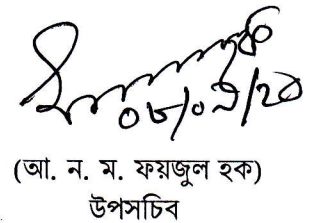 ০৮/০৯/২০
(আ. ন. ম. ফয়জুল হক)
উপসচিব